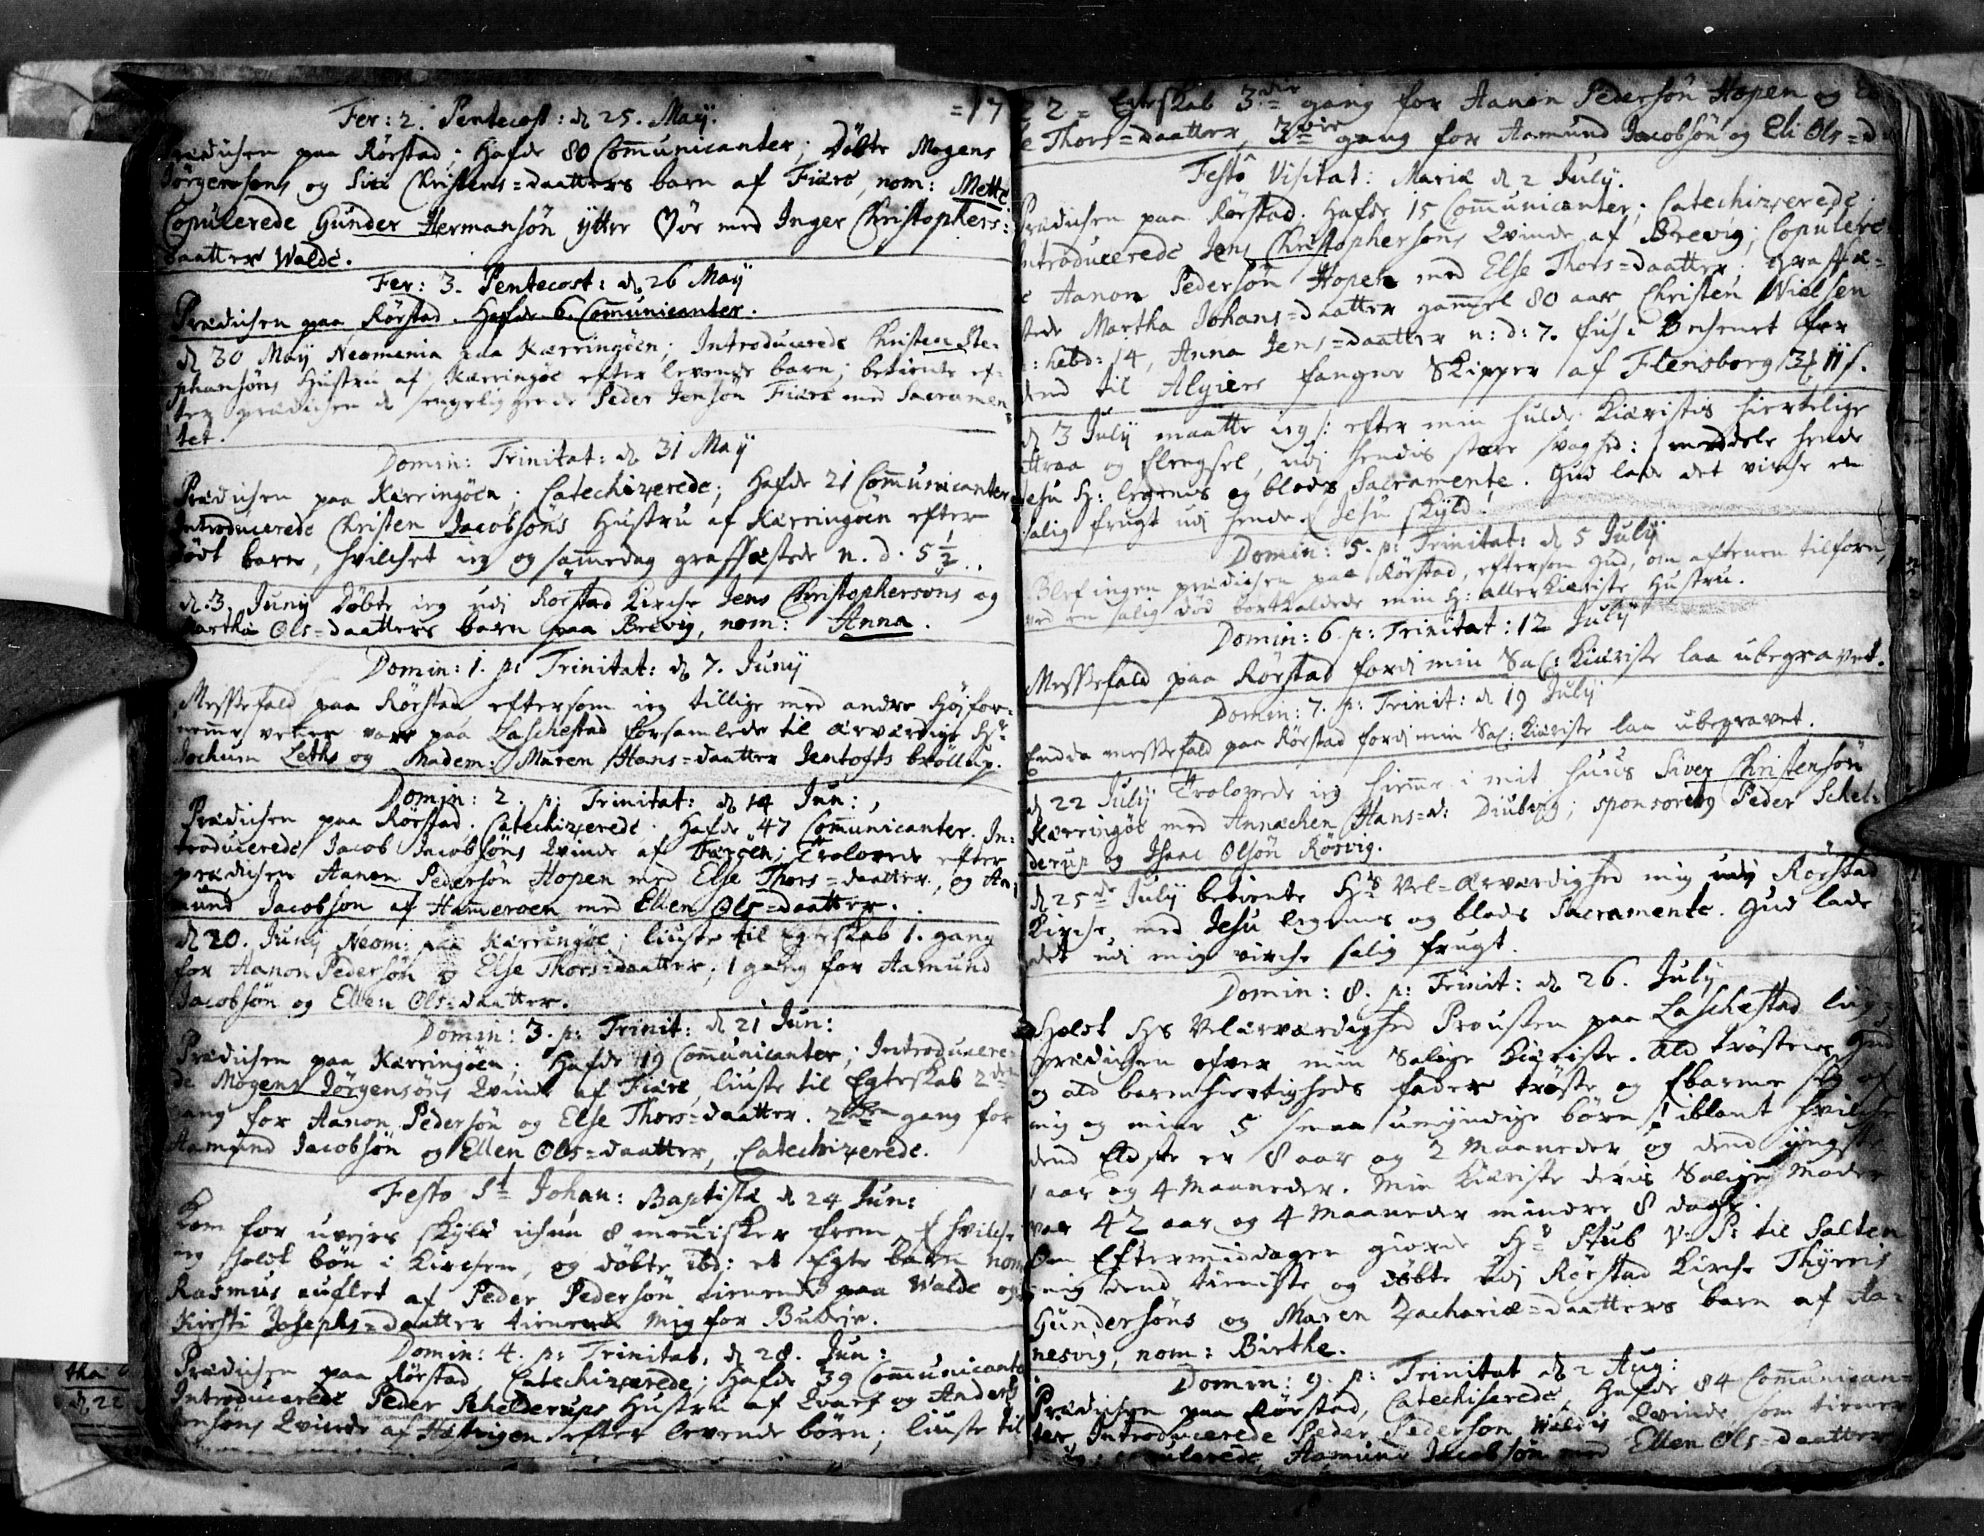 Fer: 2. Pentecost: d. 25. Maÿ. =17
Prædichen paa Rörstad; Hafde 80 Communicanter; Döbte Mogens
Jörgensøns og Siri Christens=daatters barn af Fiære, nom: Mette.
Copulerede Gunder Hermansön ÿttre Mör med Inger Christophers:
daatter Walde.
Fer: 3. Pentecost: d. 26 Maÿ
Prædichen paa Rörstad. Hafde 6 Communicanter.
d. 30 Maÿ Neomenia paa Kærringöen; Introducerede Christen Ste-
phansöns Hustru af Kærringöe efter levende barn; betiente ef-
ter prædichen d. sengeliggende Peder Jensøn Fiære med Sacramen
tet.
Domin: Trinitat: d. 31 Maÿ
Prædichen paa Kærringöen; Catechizerede; Hafde 21 Communicanter
Introducerede Christen Jacobsöns Hustru af Kærringöen efter
Födt barn, hvilchet ieg og sammedag graffæstede n. d. 5 1/2.
d. 3. Junÿ Döbte ieg udj Rörstad Kirche Jens Christophersøns og
Martha Ols=daatters barn paa Brevig, nom: Anna.
Domin: 1. p: Trinitat: d. 7. Junÿ
Messefald paa Rörstad eftersom ieg tillige med andre Höjfor-
nemme venner vare paa Laschestad forsamlede til ærværdige Hr:
Jochum Leths og Madem: Maren Hans=daatter Jentofts bröllup.
Domin: 2. p: Trinitat: d. 14 Jun:
Prædichen paa Rörstad. Catechizerede. Hafde 47 Communicanter. In-
troducerede Jacob Jacobsöns Qvinde af; Trolovede efter
prædichen Aanon Pedersön Hopen med Else Thors=daatter, og Aa-
mund Jacobsøn af Hammerøen med Ellen Ols=daatter.
d. 20. Junÿ Neom: paa Kærringöe; liuste til Egteskab 1. gang
for Aanon Pedersön og Else Thors=daatter; 1 gang for Aamund
Jacobsøn og Ellen Ols=daatter.
Domin: 3. p: Trinit: d. 21 Jun:
Prædichen paa Kærringöen; Hafde 19 Communicanter; Introducere-
de Mogens Jörgensöns Qvinde af Fiære, liuste til Egteskab 2den
gang for Aanon Pedersön og Else Thors=daatter. 2den gang for
Aamund Jacobsön og Ellen Ols=daatter, Catechizerede.
Festo St Johan: Baptistæ d. 24 Jun:
Kom for uvejrs skÿld ichun 8 mennisker frem, hvilche
ieg holdt bön i Kirchen, og döbte ibd: et Egte barn nom
Rasmus auflet af Peder Pedersön tienende paa Walde og
Kirsti Josephs=daatter tienende mig for Budeje.
Domin: 4. p: Trinitat: d. 28. Jun:
Prædichen paa Rörstad, Catechizerede; Hafde 39 Communicanter
Introducerede Peder Schelderups Hustru af Qvarf og Anders
Jensöns Qvinde af efter levende börn; liuste til
22= Egteskab 3die gang for Aanon Pedersön Hopen og
Thors=daatter, 3die gang for Aamund Jacobsön og Eli Ols=d
Festo Visitat: Mariæ d. 2 Julÿ.
Prædichen paa Rörstad. Hafde 15 Communicanter; Catechizerede.
Introducerede Jens Christophersøns Qvinde af Brevig; Copulere-
de Aanon Pedersön Hopen med Else Thors=daatter; graffæ-
stede Martha Johans=daatter gammel 80 aar Christen Nielsen
: hebd: 14, Anna Jens=daatter n: d: 7. for
dend til Algiers fangne Skipper af Flensborg 3 11 s.
d. 3 Julÿ maatte ieg: efter min hulde Kiæristis hiertelige
Attraa og Lengsel, udj hendis store svaghed: meddele hende
Jesu H: legems og blods Sacramente. Gud lade det virche en
salig frugt udj hende f Jesu skÿld!
Domin: 5. p: Trinitat: d. 5 Julÿ
Blef ingen prædichen paa Rörstad, eftersom Gud, om aftenen tilforn,
ved en salig död bortkaldede min H: allerkiæriste Hustru.
Domin: 6. p: Trinitat: 12 Julÿ
Messefald paa Rörstad fordj min Sal: Kiæriste laa ubegravet.
Domin: 7. p: Trinit: d. 19 Julÿ
Endda messefald paa Rörstad fordj min Sal: Kiæriste laa ubegravet.
d. 22 Julÿ Trolovede ieg hiemme i mit huus Siver Christensön
Kærringöe med Annechen Hans=d: Diubvig; sponsoribg Peder Schel-
derup og Isaac Olsön Rösvig.
d. 25de Julÿ betiente Hs Vel=ærværdighed mig udj Rörstad
Kirche med Jesu legems og blods Sacramente. Gud lade
det udj mig virche salig frugt.
Domin: 8. p: Trinit: d. 26. Julÿ
Holdt Hs Velærværdighed Prousten paa Laschestad liig-
prædichen ofver min Salige Kiæriste. Ald tröstens Gud
og ald barmhiertigheds fader tröste og Ebarme sig of
mig og mine 5 smaa umÿndige börn! iblant hvilche
dend Eldste er 8 aar og 2 Maaneder og dend ÿngste
1 aar og 4 Maaneder. Min Kiæriste deris Salige Moder
var 42 aar og 4 Maaneder mindre 8 dage.
Om Eftermiddagen giorde Hr Stub V: P: til Salten
mig dend tieniste og döbte udj Rörstad Kirche Thÿrris
Gundersöns og Maren Zachariæ=daatters barn af Aa-
nesvig, nom: Birthe.
Domin: 9. p: Trinitat d. 2 Aug:
Prædichen paa Rörstad, Catechiserede, Hafde 84 Communican-
ter, Introducerede Peder Pedersøn Waldis Qvinde, som tiener
Aamund Jacobsön med Ellen Ols=daatter